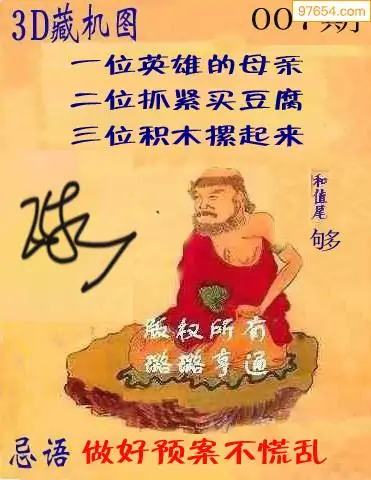 97654.com
3D藏机图
001期
一位英雄的母亲
二位抓紧买豆腐
三位积木摞起来
和值尾
够
版权所有
璐璐亨通
忌语 做好预案不慌乱